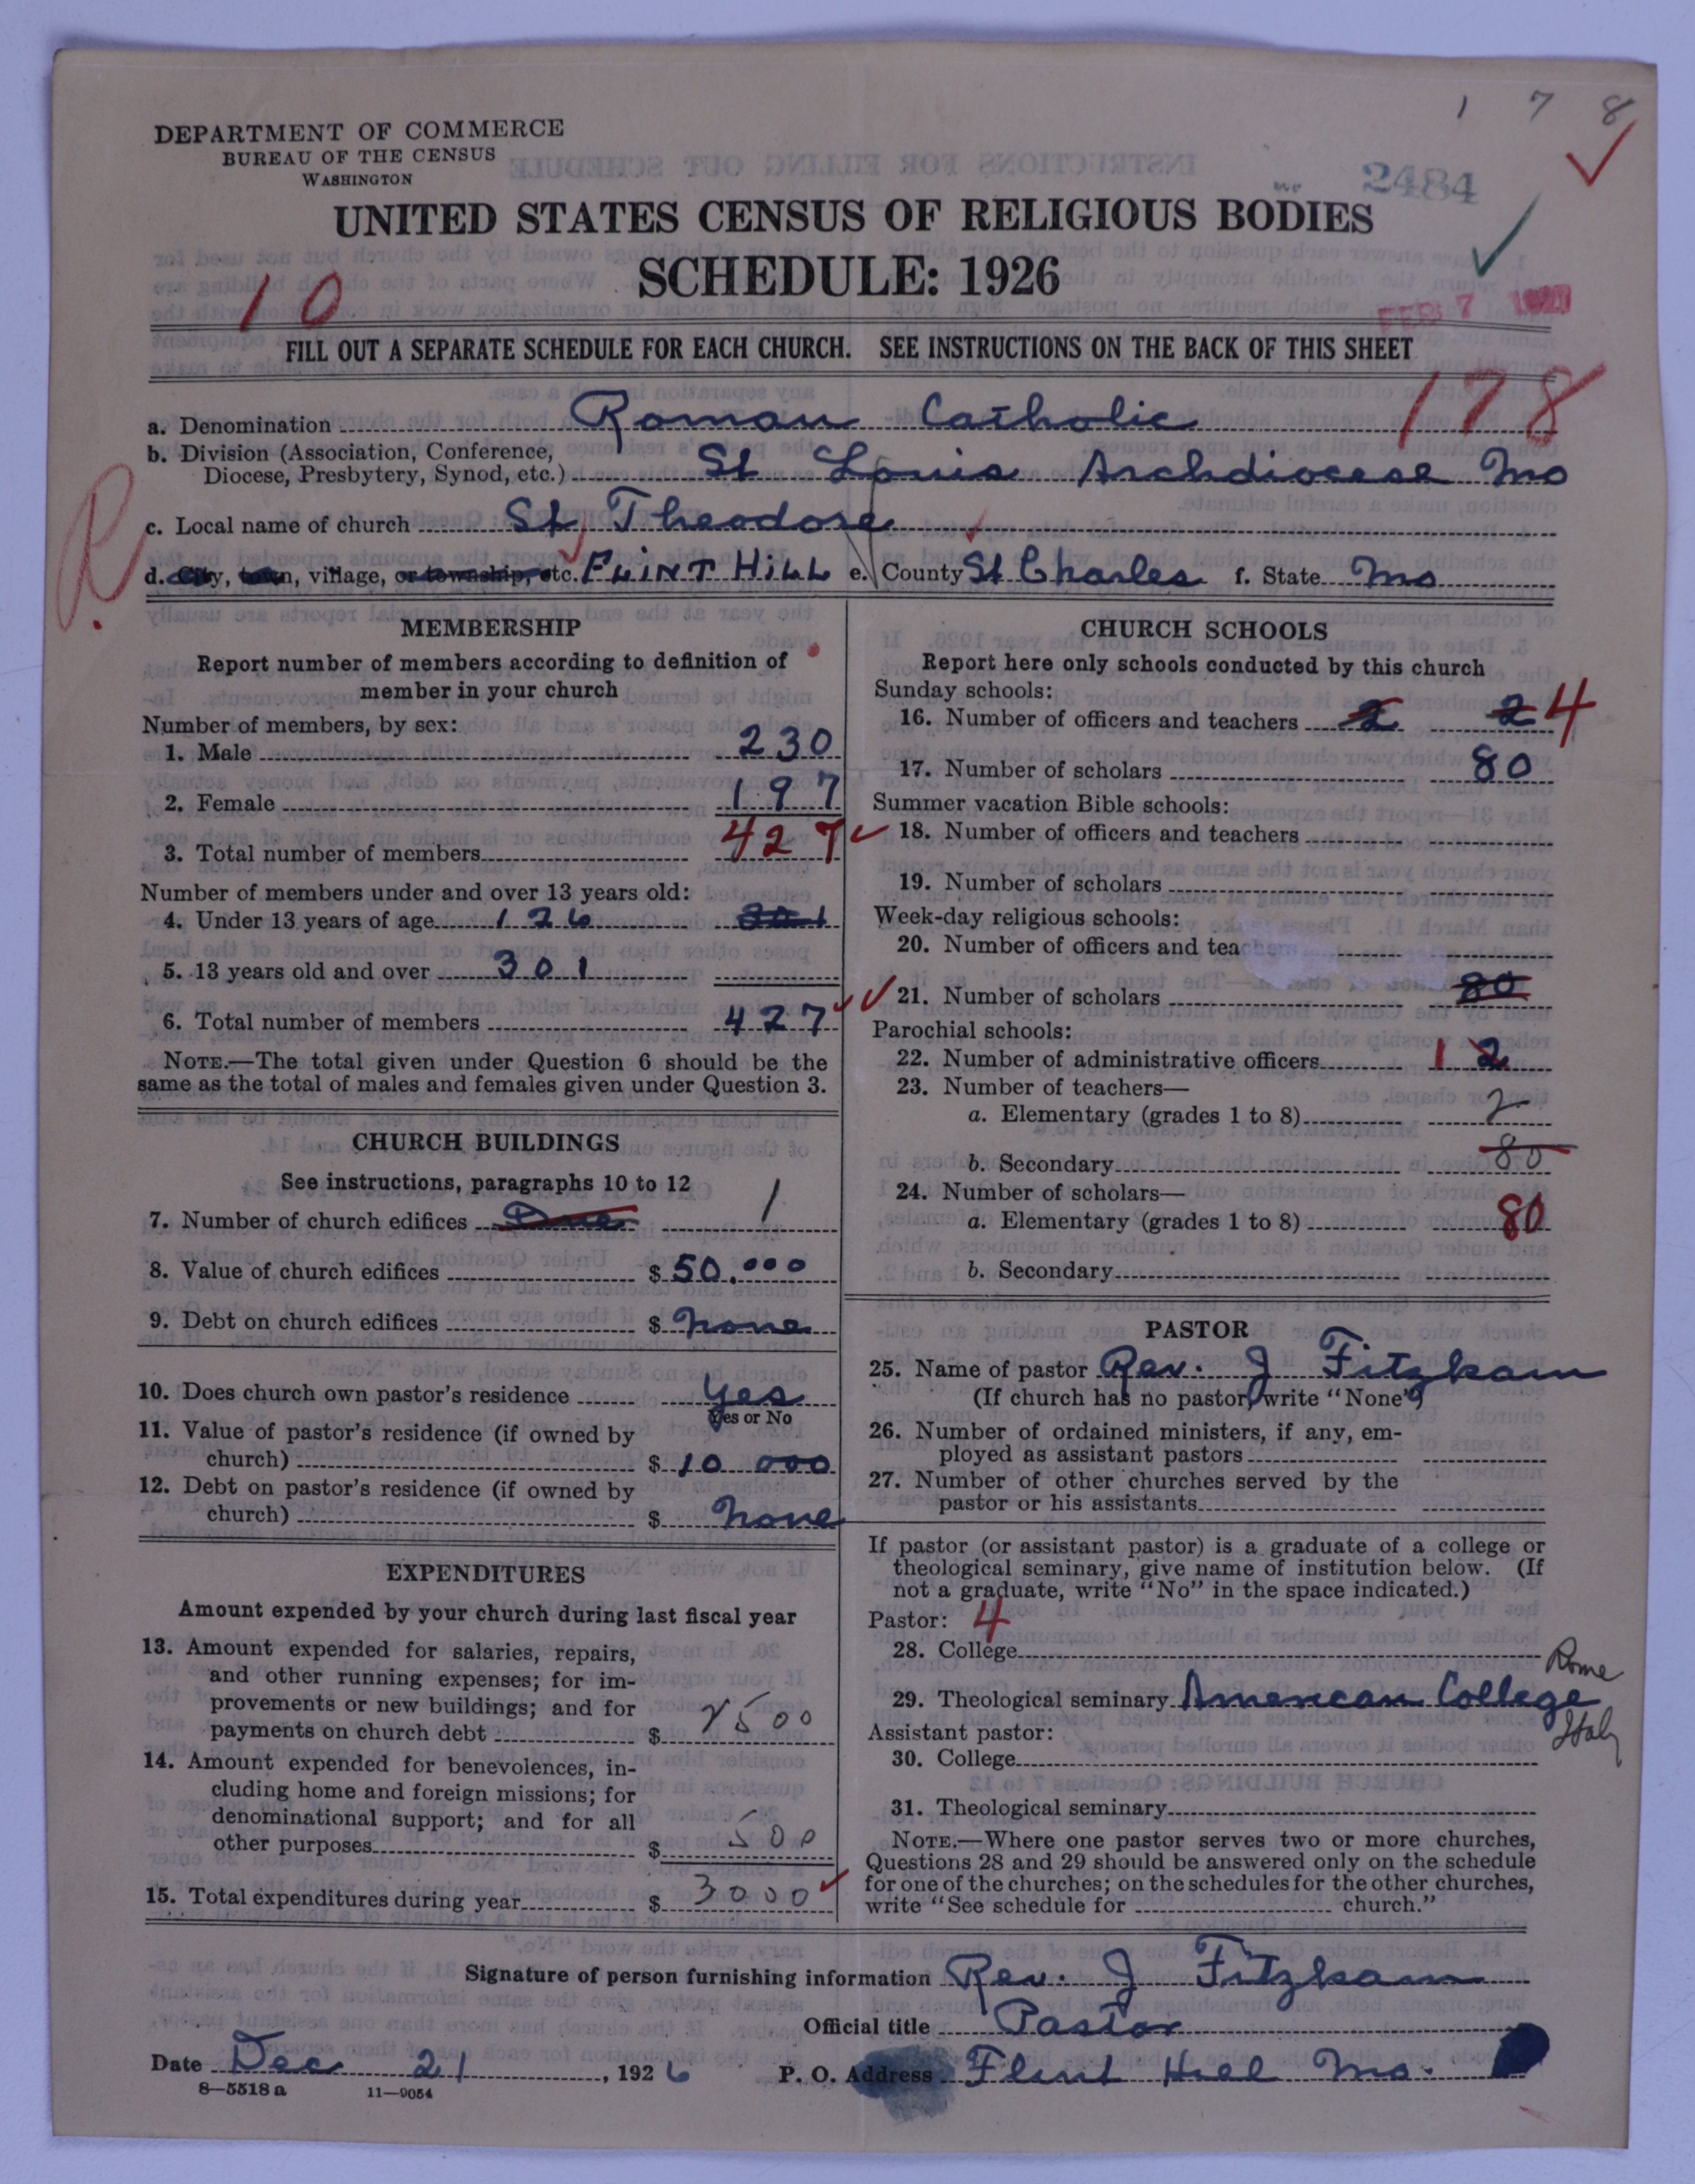 1 7 8
DEPARTMENT OF COMMERCE
BUREAU OF THE CENSUS
WASHINGTON
2484
UNITED STATES CENSUS OF RELIGIOUS BODIES
SCHEDULE: 1926
10
FEB 7 1927
FILL OUT A SEPARATE SCHEDULE FOR EACH CHURCH. SEE INSTRUCTIONS ON THE BACK OF THIS SHEET
178
a. Denomination Roman Catholic
b. Division (Association, Conference,
Diocese, Presbytery, Synod, etc.) St Louis Archdiocese Mo
c. Local name of church St Theodore
R.
d. City, town, village, or township, etc. FLINT HILL e. County St Charles f. State Mo
MEMBERSHIP
Report number of members according to definition of
member in your church
Number of members, by sex:
1. Male 230
2. Female 197
3. Total number of members 427
Number of members under and over 13 years old:
4. Under 13 years of age 126 301
5. 13 years old and over 301
6. Total number of members 427
NOTE.—The total given under Question 6 should be the
same as the total of males and females given under Question 3.
CHURCH BUILDINGS
See instructions, paragraphs 10 to 12
7. Number of church edifices One 1
8. Value of church edifices $ 50.000
9. Debt on church edifices $ None
10. Does church own pastor's residence Yes
Yes or No
11. Value of pastor's residence (if owned by
church) $ 10 000
12. Debt on pastor's residence (if owned by
church) $ None
EXPENDITURES
Amount expended by your church during last fiscal year
13. Amount expended for salaries, repairs,
and other running expenses; for im-
provements or new buildings; and for
payments on church debt $ 2500
14. Amount expended for benevolences, in-
cluding home and foreign missions; for
denominational support; and for all
other purposes $ 500
15. Total expenditures during year $ 3000
CHURCH SCHOOLS
Report here only schools conducted by this church
Sunday schools:
16. Number of officers and teachers 2 2 4
17. Number of scholars 80
Summer vacation Bible schools:
18. Number of officers and teachers
19. Number of scholars
Week-day religious schools:
20. Number of officers and teachers
21. Number of scholars 80
Parochial schools:
22. Number of administrative officers 1 2
23. Number of teachers—
a. Elementary (grades 1 to 8) 2
b. Secondary 80
24. Number of scholars—
a. Elementary (grades 1 to 8) 80
b. Secondary
PASTOR
25. Name of pastor Rev. J Fitzkam
(If church has no pastor, write "None")
26. Number of ordained ministers, if any, em-
ployed as assistant pastors
27. Number of other churches served by the
pastor or his assistants
If pastor (or assistant pastor) is a graduate of a college or
theological seminary, give name of institution below. (If
not a graduate, write "No" in the space indicated.)
Pastor: 4
28. College
29. Theological seminary American College Rome Italy
Assistant pastor:
30. College
31. Theological seminary
NOTE.—Where one pastor serves two or more churches,
Questions 28 and 29 should be answered only on the schedule
for one of the churches; on the schedules for the other churches,
write "See schedule for church."
Signature of person furnishing information Rev. J Fitzkam
Official title Pastor
Date Dec 21, 1926 P. O. Address Flint Hill Mo.
8—5518 a 11—9054